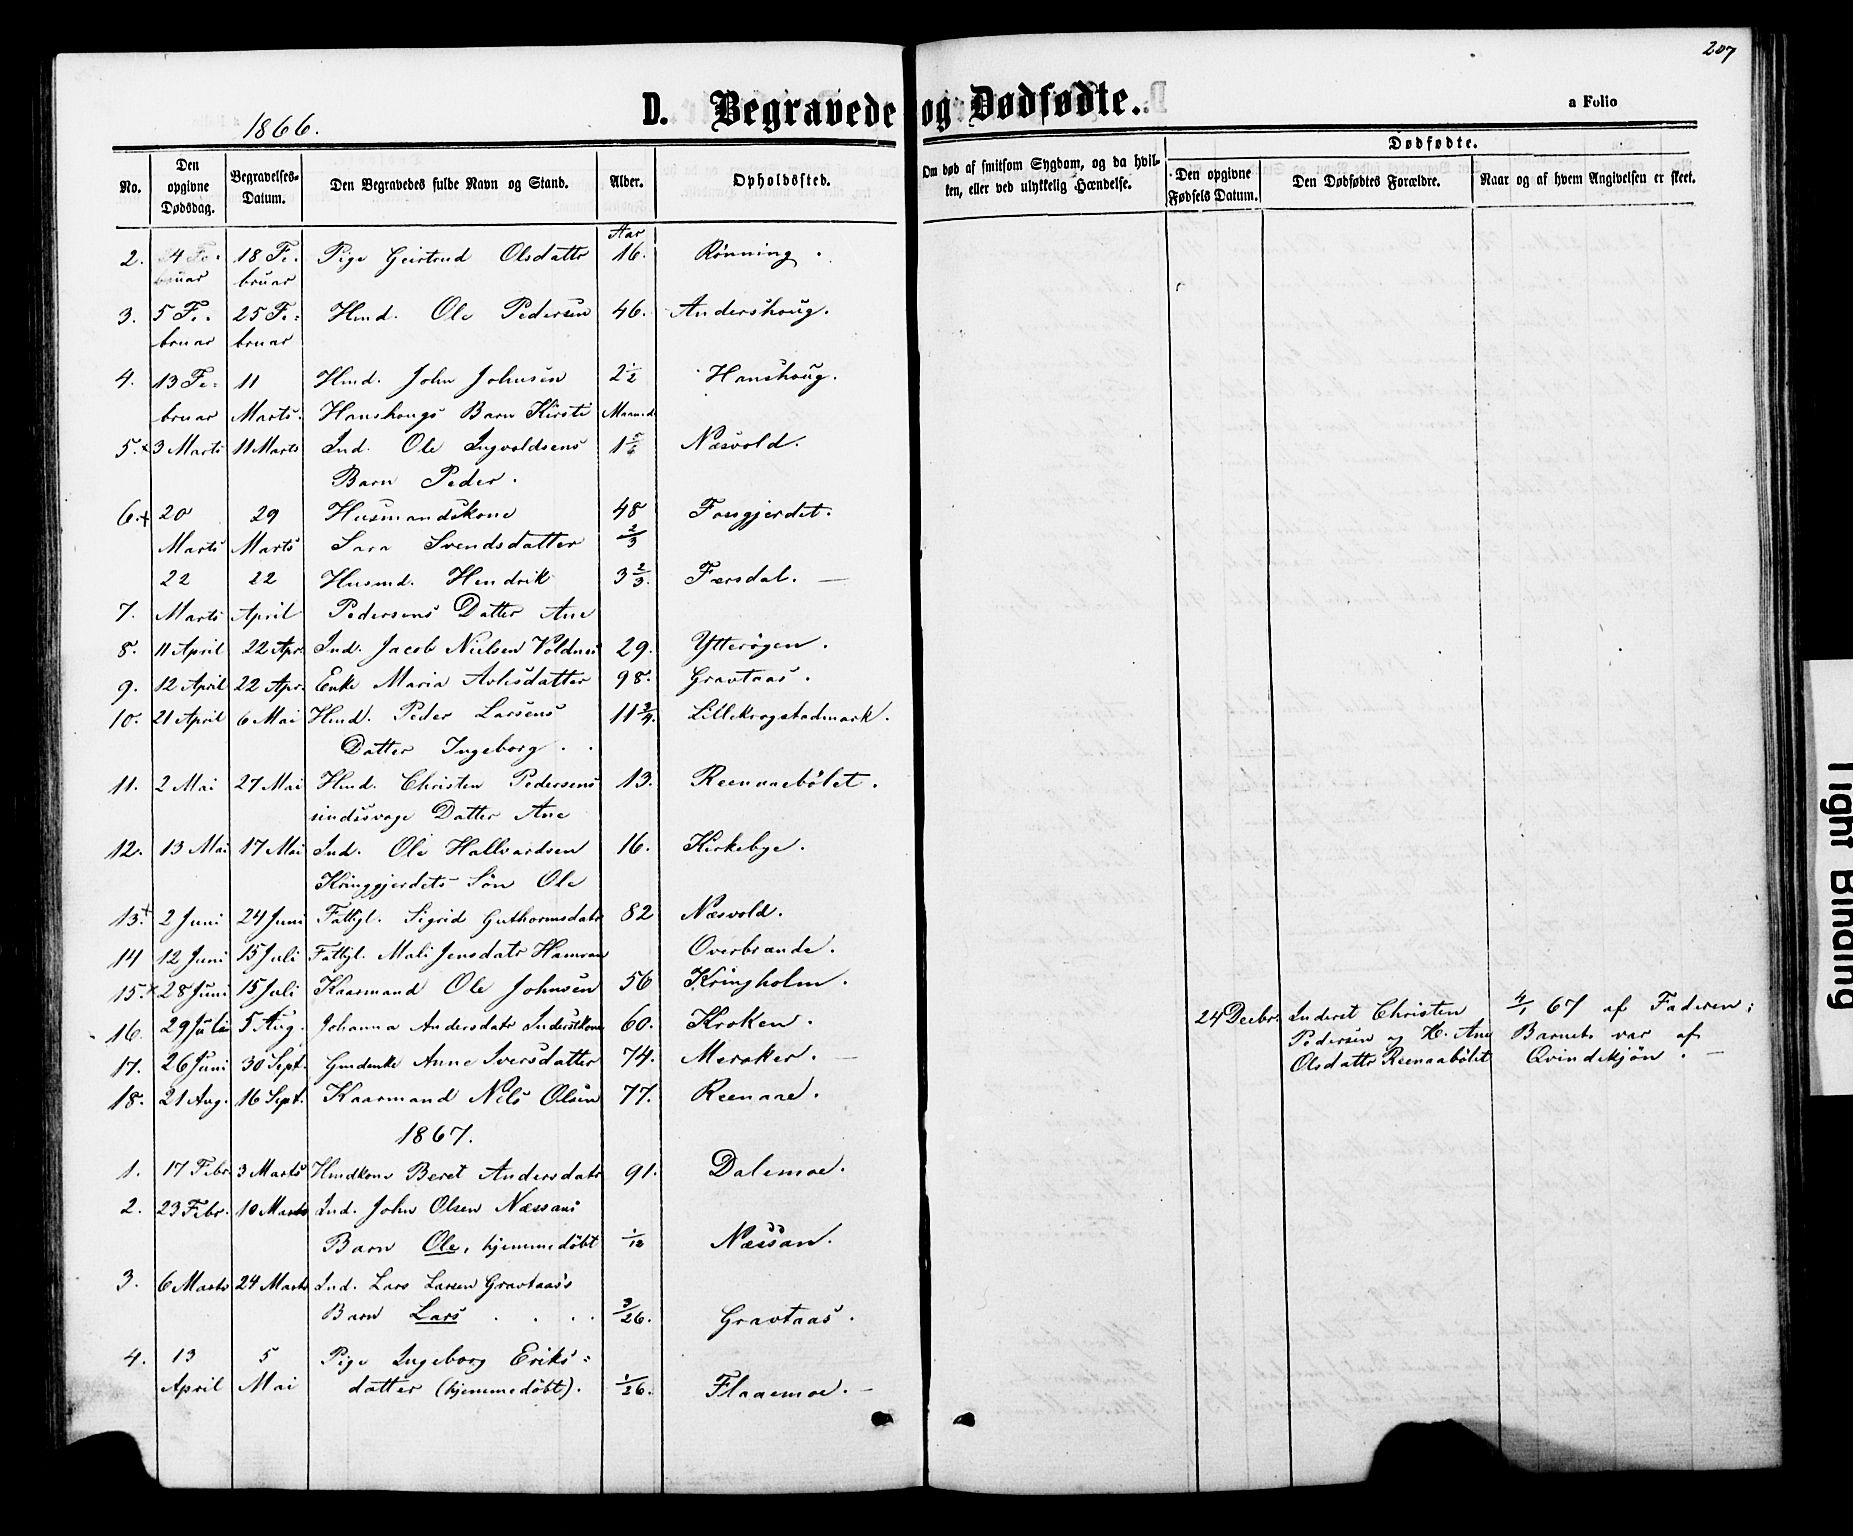 207
1866.
D. Begravede og Dødfødte.
a Folio
No. Den opgivne Dødsdag. Begravelses-Datum. Den Begravedes fulde Navn og Stand. Alder. Opholdssted. Om død af smitsom Sygdom, og da hvilken, eller ved ulykkelig Hændelse. Dødfødte. Den opgivne Fødsels Datum. Den Dødfødtes Forældre. Naar og af hvem Angivelsen er skeet.
Aar
2. 18 Fe- Pige Geirtrud Olsdattr 16. Rønning.
bruar bruar
3. 5 Fe- 25 Fe- Hmd. Ole Pedersen 46. Andershoug.
bruar bruar
4. 13 Fe- 11 Hmd. John Johnsen 2½ Hanshoug.
bruar Marts. Hanshougs Barn Kirsti Maaned
5.+ 3 Marts 11 Marts Ind. Ole Ingvoldsens Næsvold.
Barn Peder.
6.+ 20 29 Husmandskone 48 Fossgjerdet.
Marts Marts Sara Svendsdatter 2/3
22 22 Husmd. Hendrik 3 2/3. Færsdal. —
7. Marts April Pedersens Datter Ane
8. 11 April 22 Apr. Ind. Jacob Nielsen 29. Ytterøgen.
9. 12 April 22 Apr. Enke Maria 98. Gravtaas.
10. 21 April 6 Mai Hmd. Peder Larsens 11 3/4. Lillekrogstadmark.
Datter Ingeborg.
11. 2 Mai 27 Mai Hmd. Christen Pedersens 13. Reenaaebølet.
sindssvage Datter Ane
12. 13 Mai 17 Mai Ind. Ole Hallvardsen 16. Kirkebye.
Kringgjerdets Søn Ole
13+ 2 Juni 24 Juni Fattigl. Sigrid Guthormsdatr 82 Næsvold.
14 12 Juni 15 Juli Fattigl. Mali Jensdatr Overbrænde.
15.+ 28 Juni 15 Juli Kaarmand Ole Johnsen 56 Kringholm.
16. 29 Julie 5 Aug. Johanna Andersdatr Inderstkone 60. Kroken.
17. 26 Juni 30 Sept. Gmdenke Anne Iversdatter 74. Meraker. —
18. 21 Aug. 16 Sept. Kaarmand Nils Olsen 77. Reenaae.
24 Decbr. Inderst Christen 4/1 67 af Faderen;
Pedersen og H. Ane Barnet var af
Olsdattr Reenaabølet Qvindekjøn. —
1867.
1. 17 Febr. 3 Marts Hmdkone Beret Andersdatr 91. Dalemoe.
2. 23 Febr. 10 Marts Ind. John Olsen Næssans
Barn Ole, hjemmedøbt 1/12 Næssan.
3. 6 Marts 24 Marts Ind. Lars Larsen Gravtaas's
Barn Lars 3/26. Gravtaas.
4. 13 5 Pige Ingeborg Eriks-
April Mai datter (hjemmedøbt). 1/26. Flaaemoe. —
Tight Binding